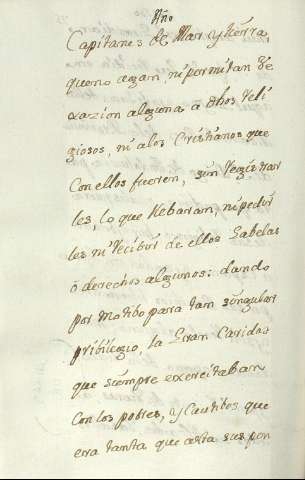 Capitanes de Mar y tierra
que no agan, ni permitan be
xazion alguna a dhos Reli
giosos, ni alos Cristianos que
Con ellos fueren, sin Registrar
les, lo que llebaran, ni pedir
les ni Recibir de ellos Gabelas
ó derechos algunos: dando
por motibo para tam singular
pribilegio, la Gran Caridad
que siempre exercitaban
Con los pobres, y Cautibos que
era tanta que asta sus pon